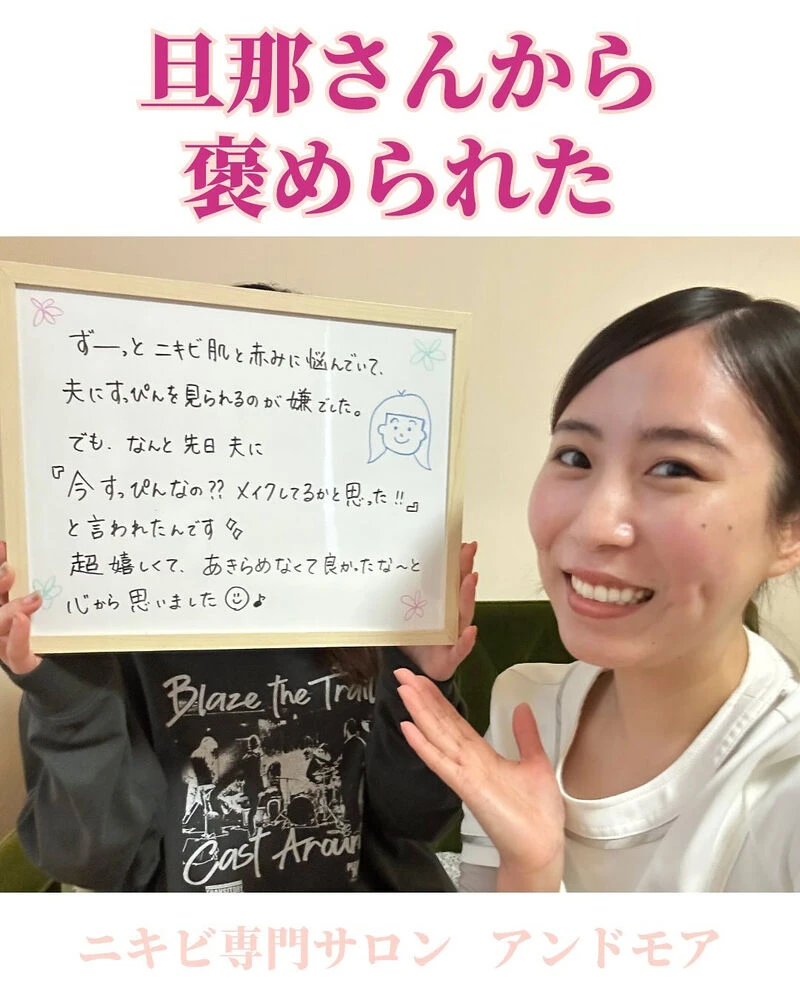 旦那さんから
褒められた
ずーっとニキビ肌と赤みに悩んでいて、
夫にすっぴんを見られるのが嫌でした。
でも、なんと先日夫に
『今すっぴんなの??メイクしてるかと思った!!』
と言われたんです
超嬉しくて、あきらめなくて良かったな〜と
心から思いました☺♪
Blaze the Trail
Cast Aroun
ニキビ専門サロン アンドモア